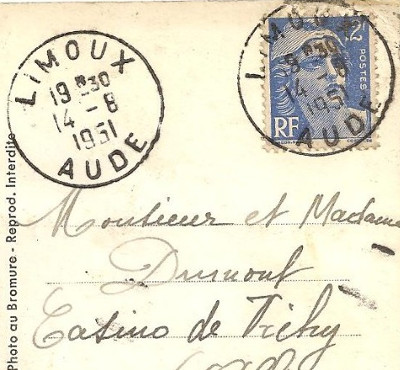 LIMOUX
19H30
14-8
1951
AUDE
LIMOUX
19 30
14-8
1951
AUDE
2
POSTES
RF
Monsieur et Madame
Dumont
Casino de Vichy
Photo au Bromure - Reprod. Interdite